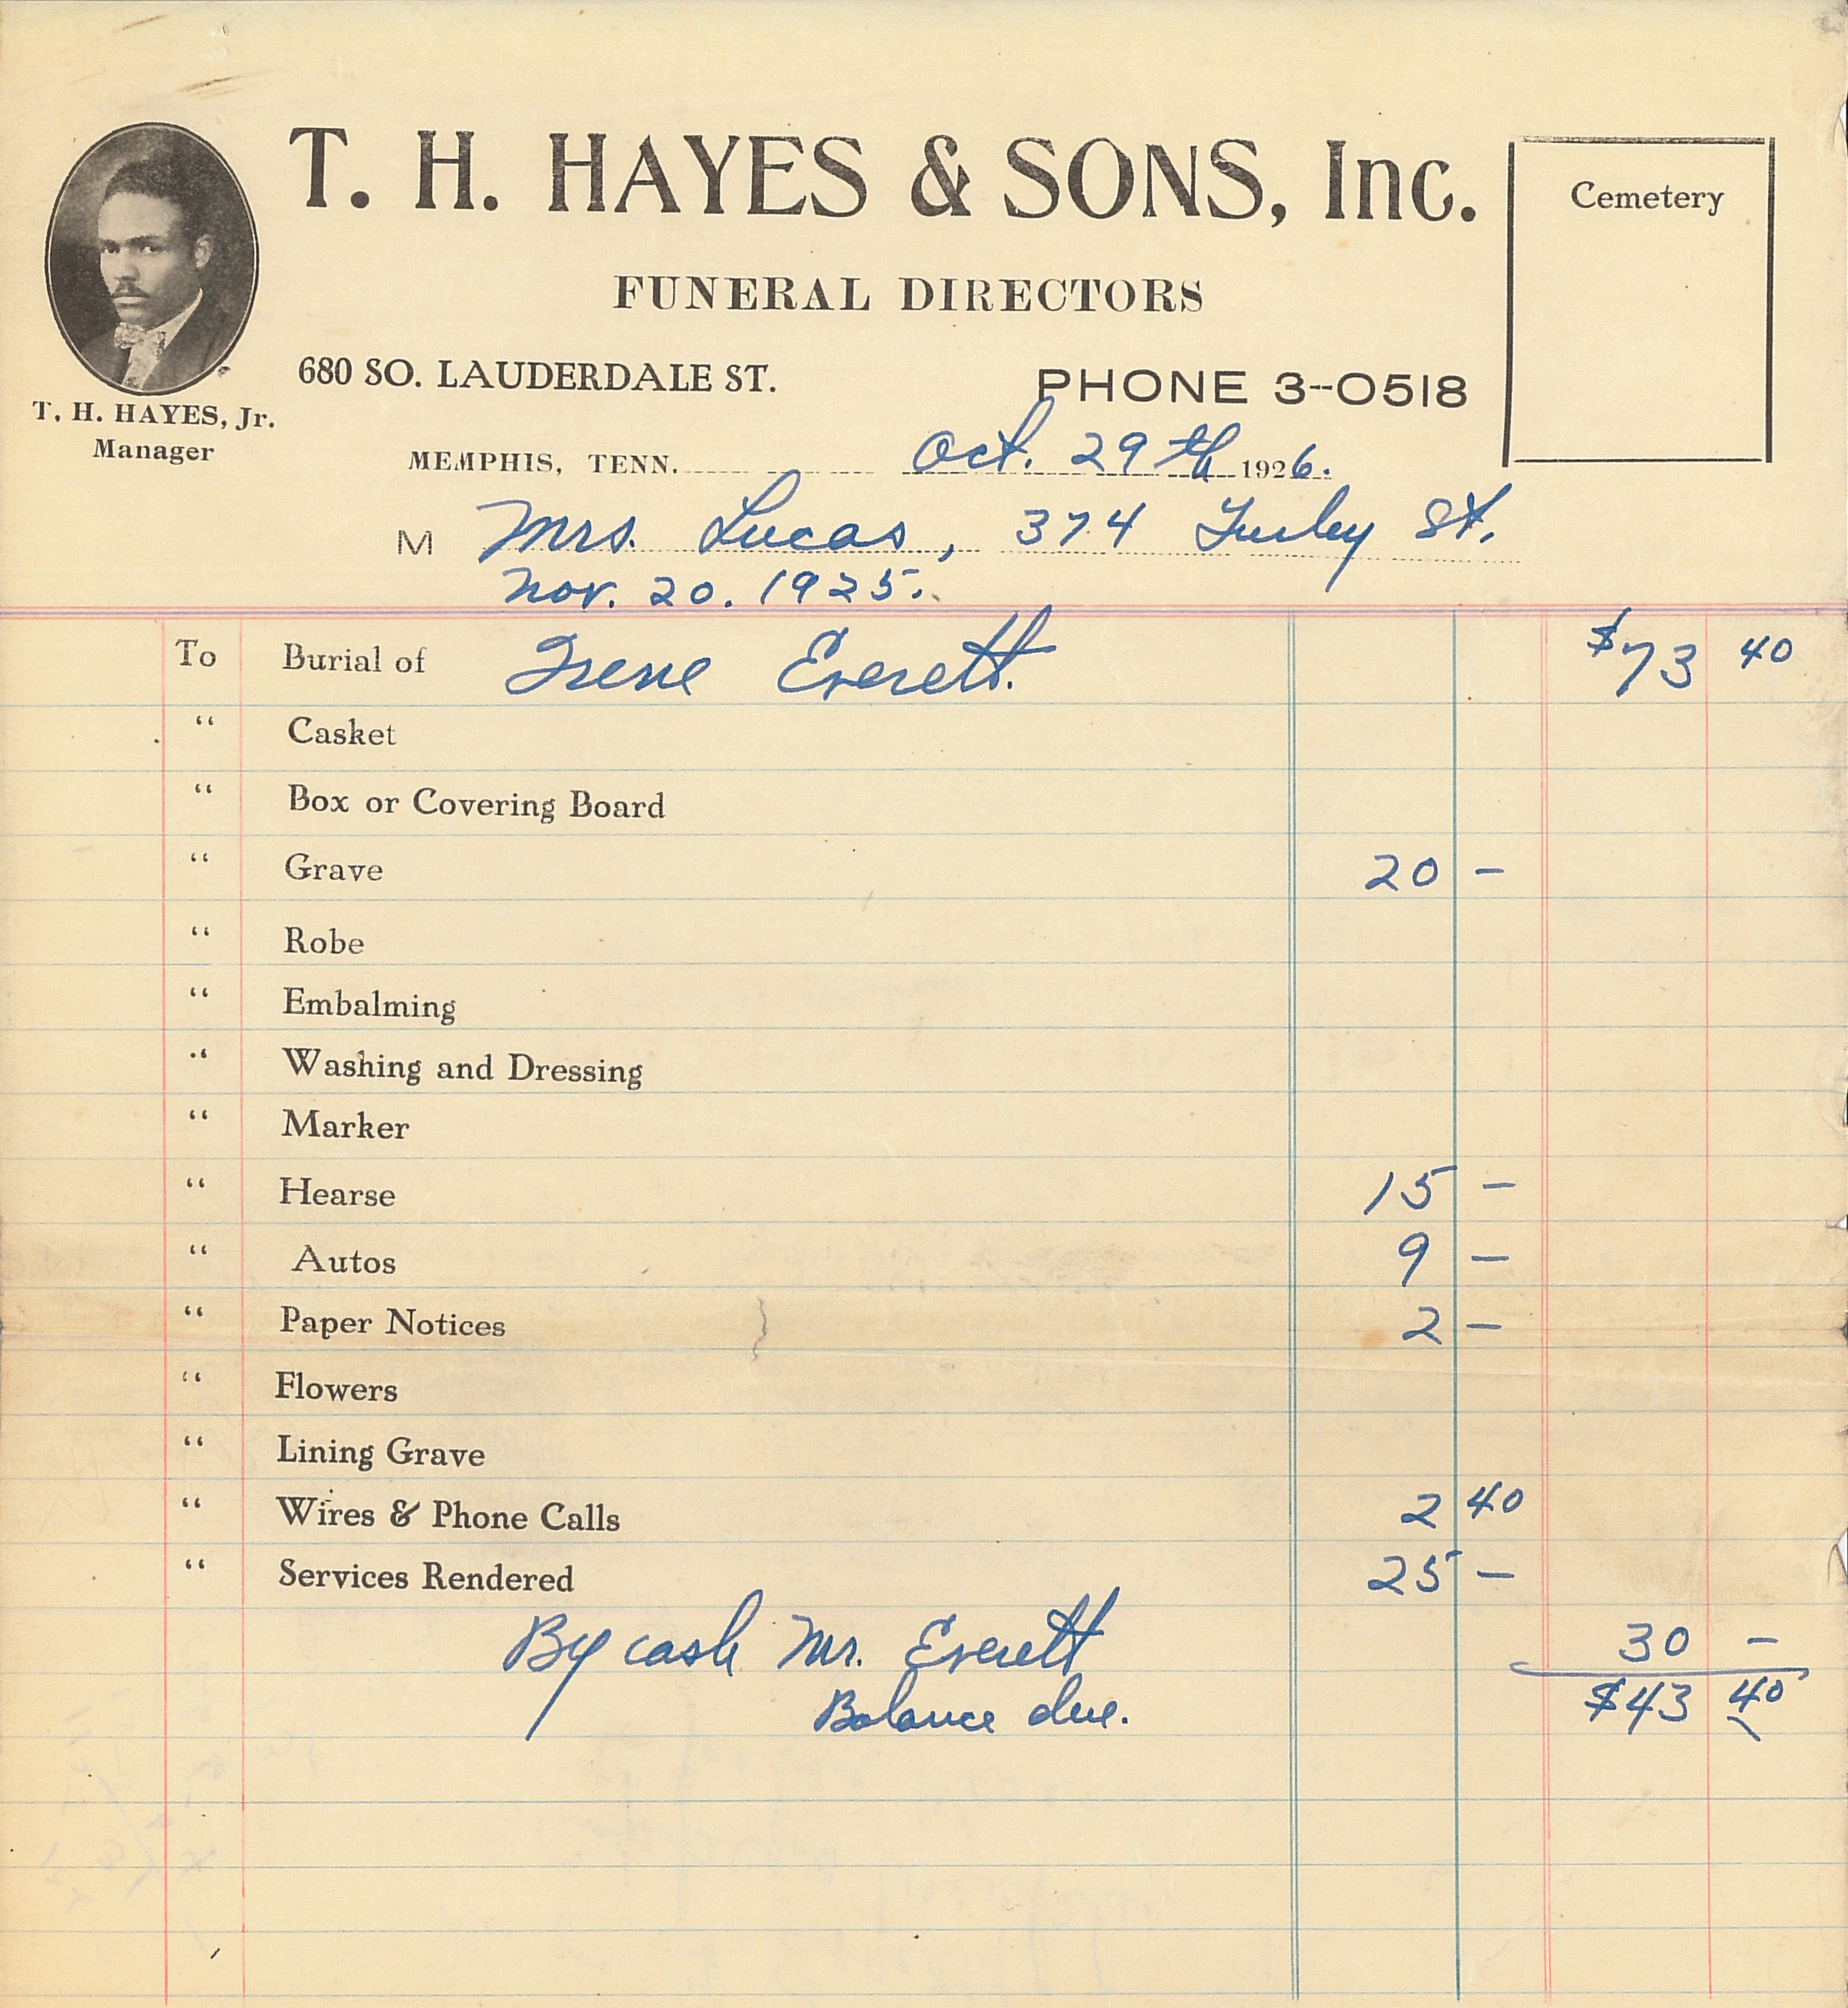 T. H. HAYES & SONS, Inc.
Cemetery
FUNERAL DIRECTORS
680 SO. LAUDERDALE ST. PHONE 3--0518
T. H. HAYES, Jr.
Manager
MEMPHIS, TENN. Oct. 29th 1926.
M Mrs. Lucas, 374 Turley St.
Nov. 20. 1925.
To Burial of Irene Everett. $73 40
“ Casket
“ Box or Covering Board
“ Grave 20 –
“ Robe
“ Embalming
“ Washing and Dressing
“ Marker
“ Hearse 15 –
“ Autos 9 –
“ Paper Notices 2 –
“ Flowers
“ Lining Grave
“ Wires & Phone Calls 2 40
“ Services Rendered 25 –
By cash Mr. Everett 30 –
Balance due. $43 40